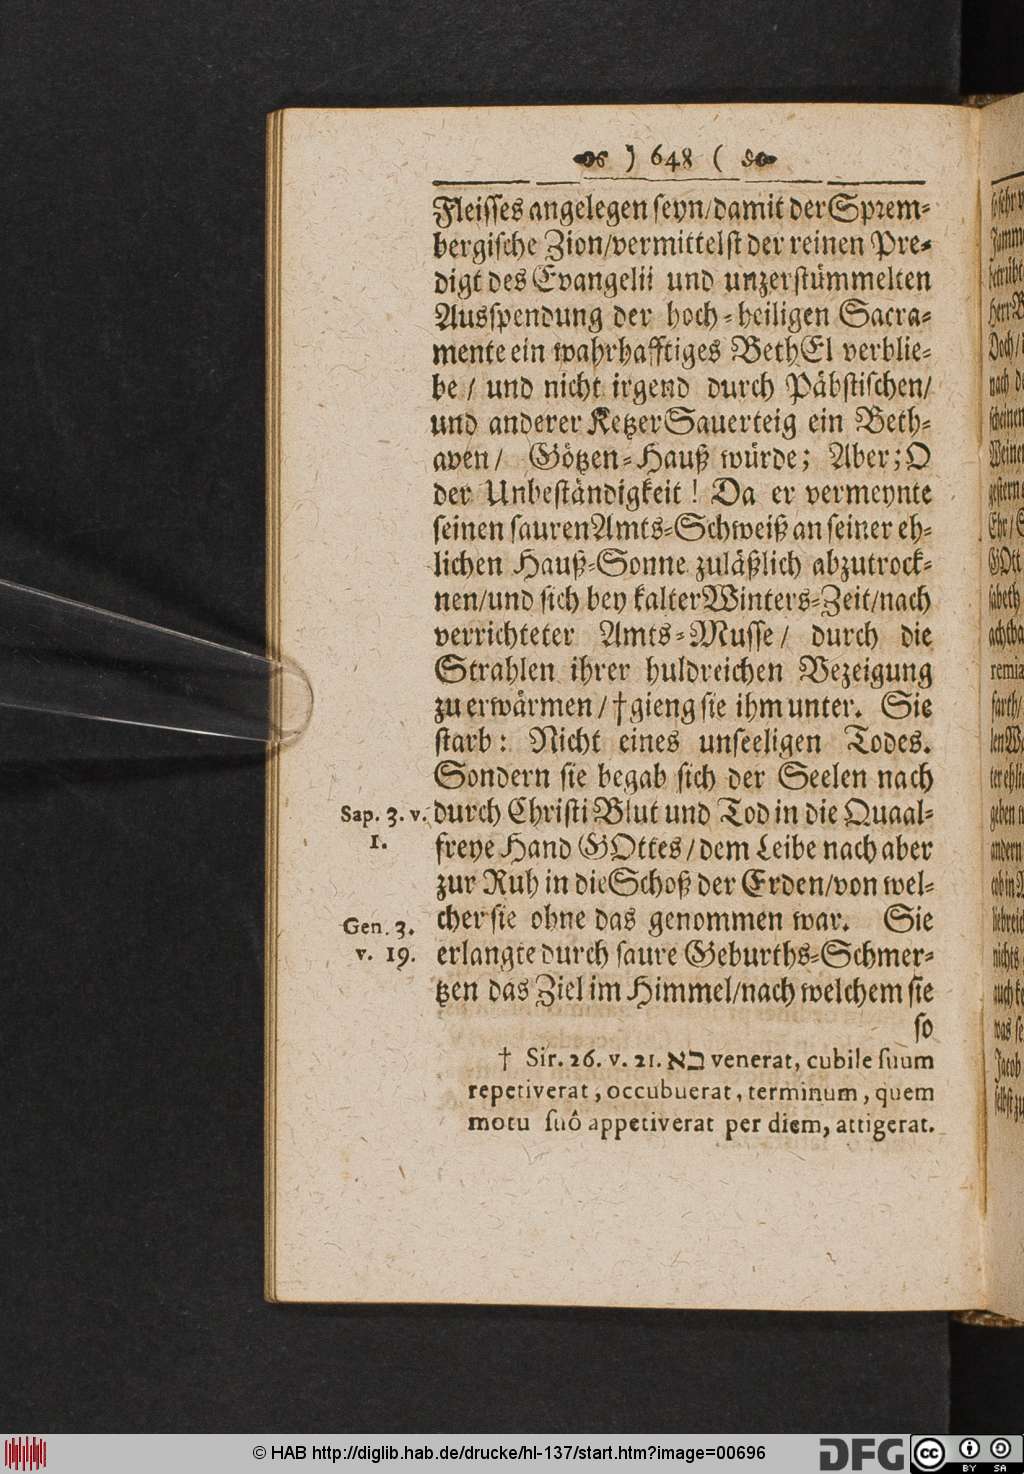 ) 648 (
Fleisses angelegen seyn/damit der Sprem-
bergische Zion/vermittelst der reinen Pre-
digt des Evangelii und unzerstümmelten
Ausspendung der hoch-heiligen Sacra-
mente ein wahrhafftiges BethEl verblie-
be / und nicht irgend durch Päbstischen/
und anderer Ketzer Sauerteig ein Beth-
aven/ Götzen-Hauß würde; Aber; O
der Unbeständigkeit! Da er vermeynte
seinen sauren Amts-Schweiß an seiner eh-
lichen Hauß-Sonne zuläßlich abzutrock-
nen/und sich bey kalter Winters-Zeit/nach
verrichteter Amts-Musse/ durch die
Strahlen ihrer huldreichen Bezeigung
zu erwärmen/ † gieng sie ihm unter. Sie
starb: Nicht eines unseeligen Todes.
Sondern sie begab sich der Seelen nach
Sap. 3. v. durch Christi Blut und Tod in die Quaal-
1. freye Hand GOttes/dem Leibe nach aber
zur Ruh in die Schoß der Erden/von wel-
Gen. 3. cher sie ohne das genommen war. Sie
v. 19. erlangte durch saure Geburths-Schmer-
tzen das Ziel im Himmel/nach welchem sie
so
† Sir. 26. v. 21. בא venerat, cubile suum
repetiverat, occubuerat, terminum, quem
motu suô appetiverat per diem, attigerat.
© HAB http://diglib.hab.de/drucke/hl-137/start.htm?image=00696
DFG
cc BY SA